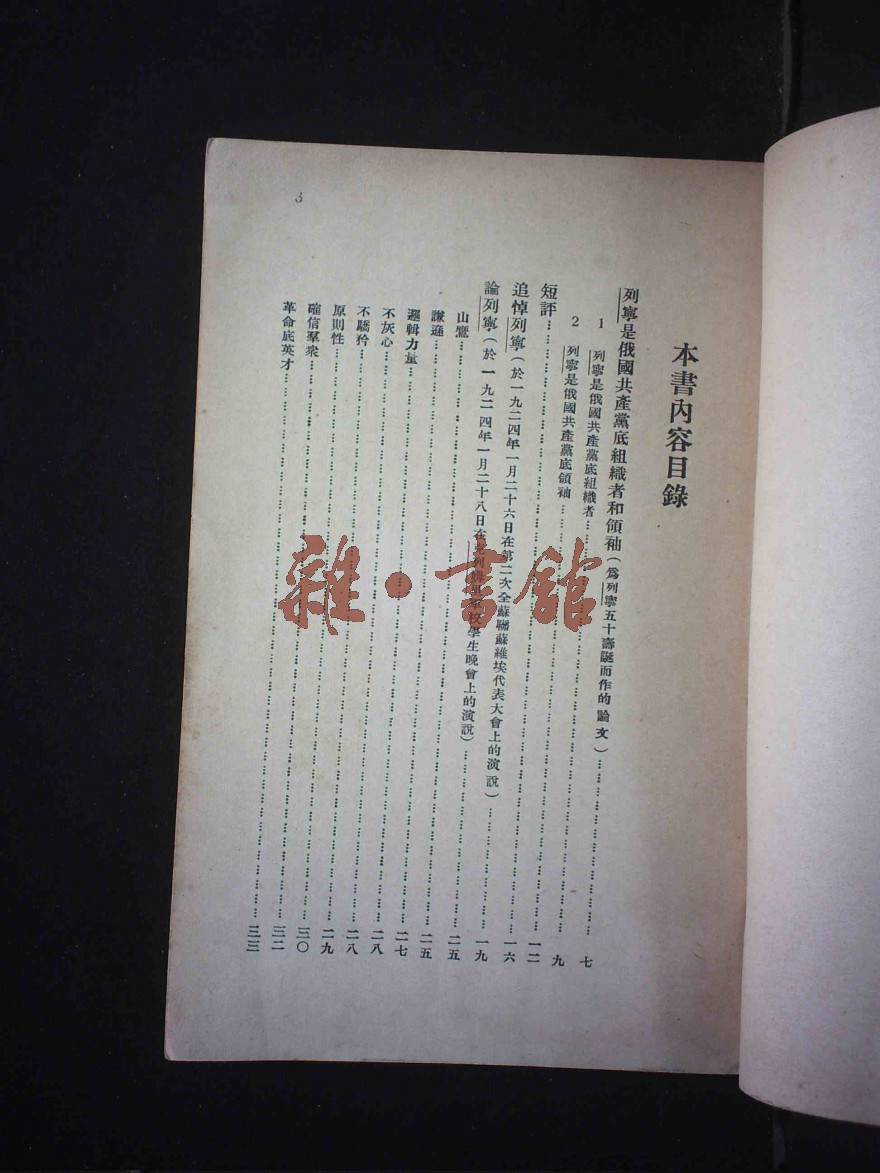 3
本書內容目錄
列寧是俄國共產黨底組織者和領袖(爲列寧五十壽誕而作的論文)……七
1 列寧是俄國共產黨底組織者……九
2 列寧是俄國共產黨底領袖……一二
短評……一六
追悼列寧(於一九二四年一月二十六日在第二次全蘇聯蘇維埃代表大會上的演說)……一九
論列寧(於一九二四年一月二十八日在克列校學生晚會上的演說)……二五
山鷹……二五
謙遜……二七
邏輯力量……二八
不灰心……二八
不驕矜……二九
原則性……三〇
確信羣衆……三二
革命底英才……三三
雜·書館